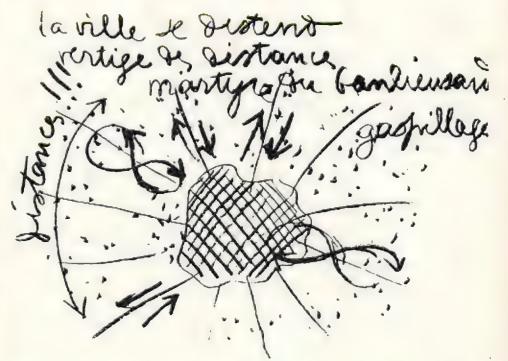 la ville se distend
vertige des distances
martyre du banlieusard
gaspillage
distances !!!